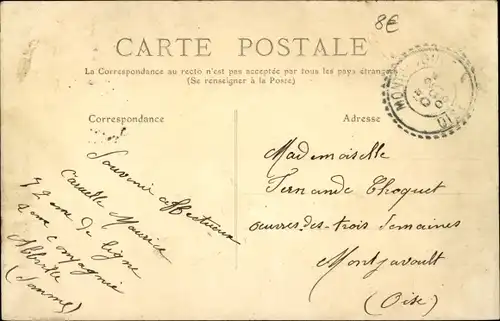 8€
CARTE POSTALE
La Correspondance au recto n'est pas acceptée par tous les pays étrangers
(Se renseigner à la Poste)
Correspondance
Adresse
Souvenir affectueux
Maurice
72 me de ligne
2 me compagnie
Abbeville
(Somme)
Mademoiselle
Fernande Choquet
œuvres des trois Semaines
Montjavoult
(Oise)